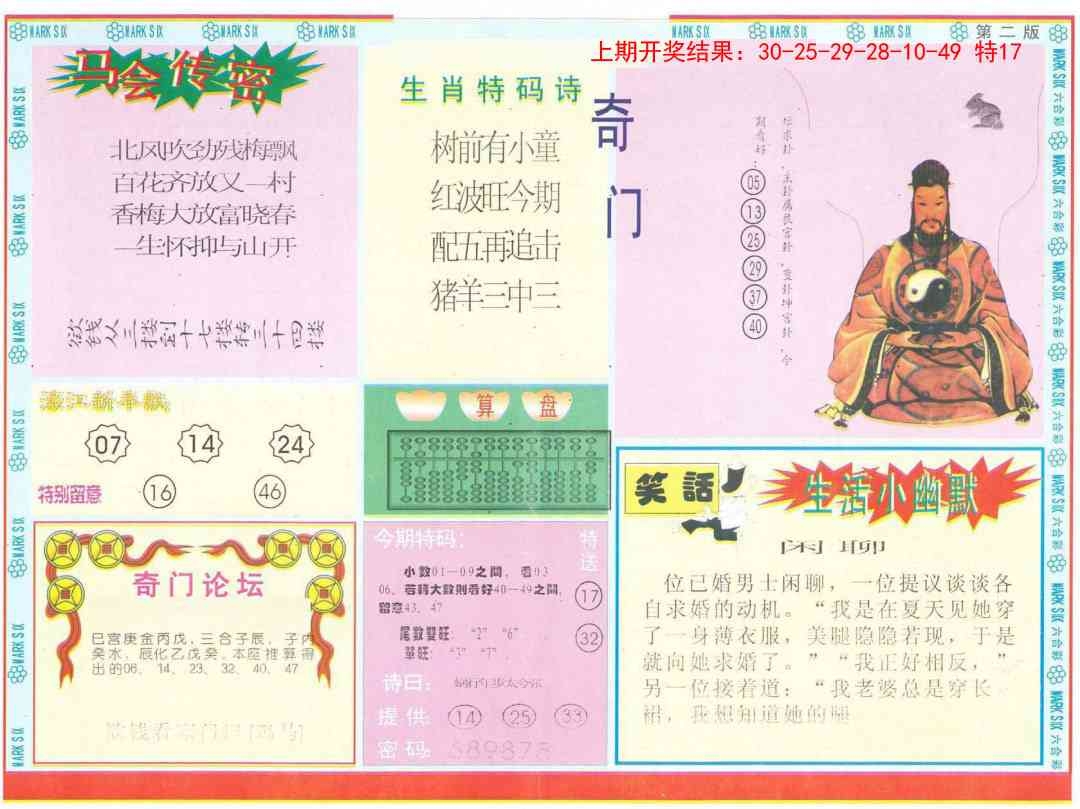 MARK SIX
MARK SIX
MARK SIX
MARK SIX
MARK SIX
MARK SIX
MARK SIX
第二版
上期开奖结果：30-25-29-28-10-49 特17
马会传密
北风吹劲残梅飘
百花齐放又一村
香梅大放富晓春
一生怀抑与山开
欲钱从三楼到十七楼转三十四楼
生肖特码诗
树前有小童
红波旺今期
配五再追击
猪羊三中三
奇门
05
13
25
29
37
40
07
14
24
特别留意
16
46
算盘
奇门论坛
巳宫庚金丙戊，三合子辰，子内
癸水，辰化乙戊癸。本座推算得
出的06、14、23、32、40、47
今期特码：
小数01—09之间，看03
06、若转大数则看好40—49之间，
留意43、47
尾数双旺：“2” “6”
单旺：
特送
17
32
诗曰：
提供：
14 25 33
密码：
689878
笑話
生活小幽默
闲聊
位已婚男士闲聊，一位提议谈谈各
自求婚的动机。“我是在夏天见她穿
了一身薄衣服，美腿隐隐若现，于是
就向她求婚了。”“我正好相反，”
另一位接着道：“我老婆总是穿长
裙，我想知道她的腿
MARK SIX 六合彩
MARK SIX 六合彩
MARK SIX 六合彩
MARK SIX 六合彩
MARK SIX 六合彩
MARK SIX 六合彩
MARK SIX 六合彩